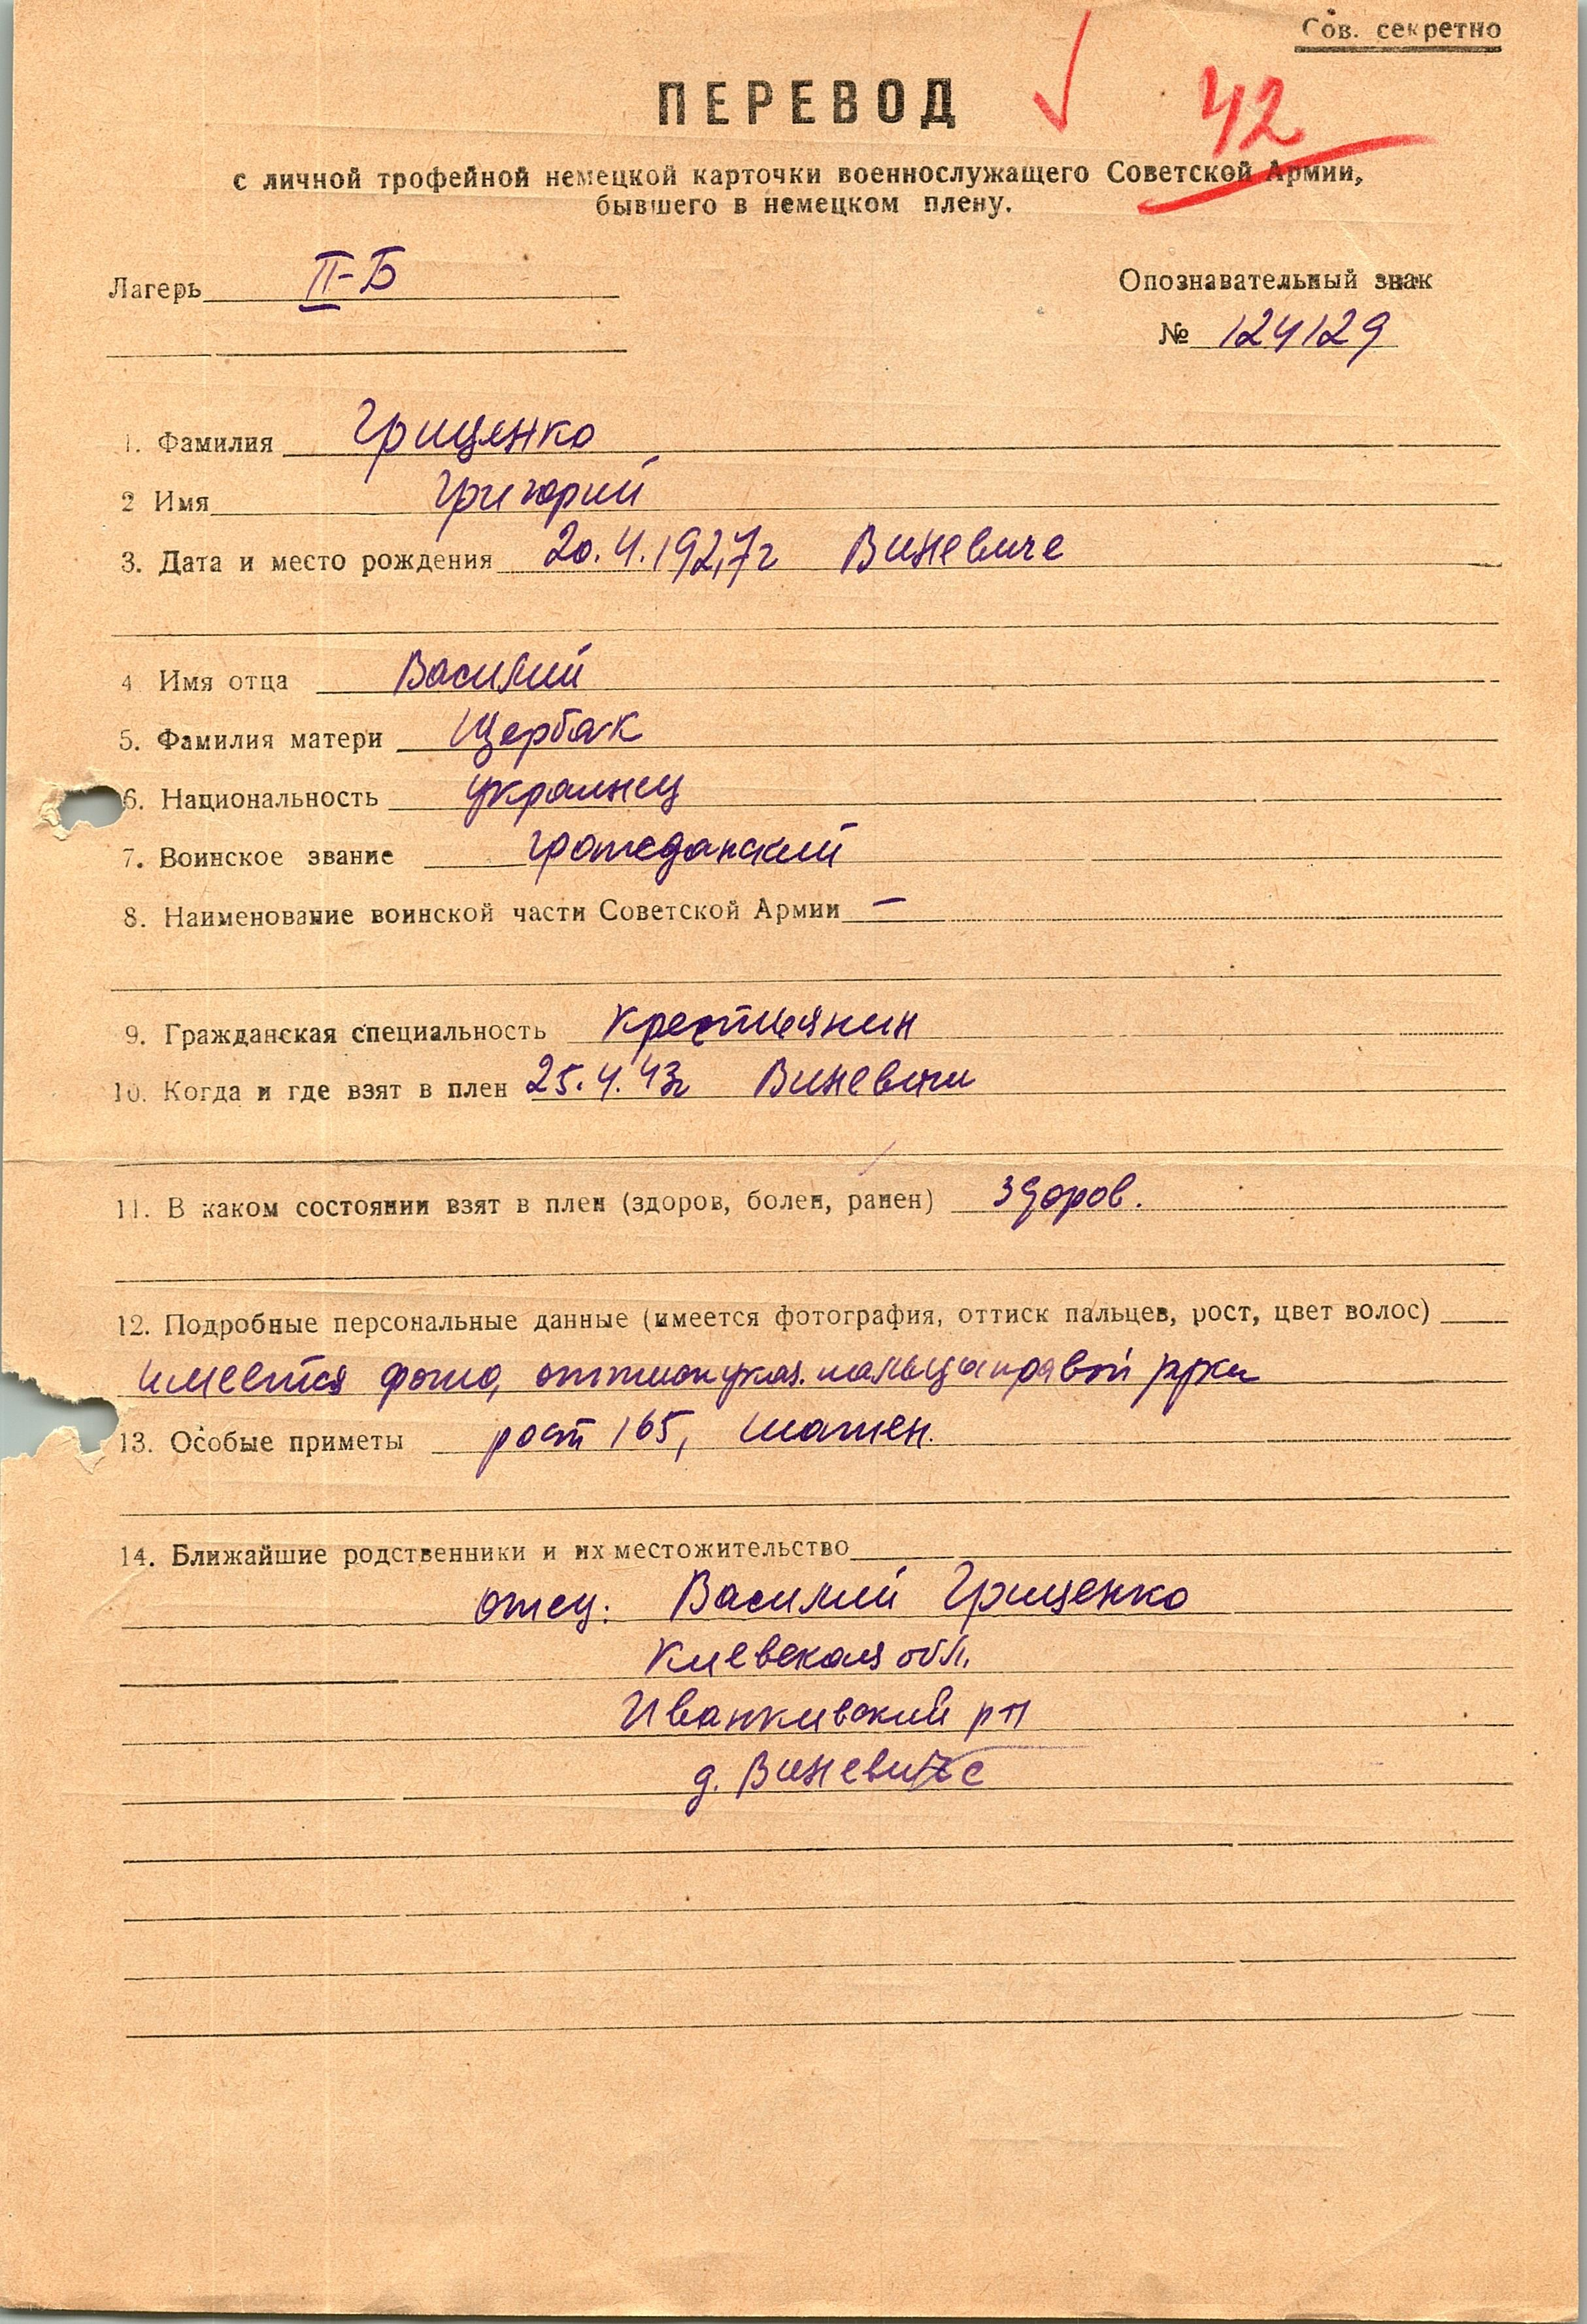 Сов. секретно
ПЕРЕВОД
42
с личной трофейной немецкой карточки военнослужащего Советской Армии,
бывшего в немецком плену.
Лагерь II-Б
Опознавательный знак
№ 124129
1. Фамилия Грищенко
2 Имя Григорий
3. Дата и место рождения 20.4.1927г Виневиче
4 Имя отца Василий
5. Фамилия матери Щербак
6. Национальность украинец
7. Воинское звание гражданский
8. Наименование воинской части Советской Армии —
9. Гражданская специальность крестьянин
10. Когда и где взят в плен 25.4.43г Виневичи
11. В каком состоянии взят в плен (здоров, болен, ранен) здоров.
12. Подробные персональные данные (имеется фотография, оттиск пальцев, рост, цвет волос)
имеется фото, оттиск указ. пальца правой руки
13. Особые приметы рост 165, шатен.
14. Ближайшие родственники и их местожительство
отец: Василий Грищенко
Киевская обл.
Иванкивский р-н
д. Виневиче